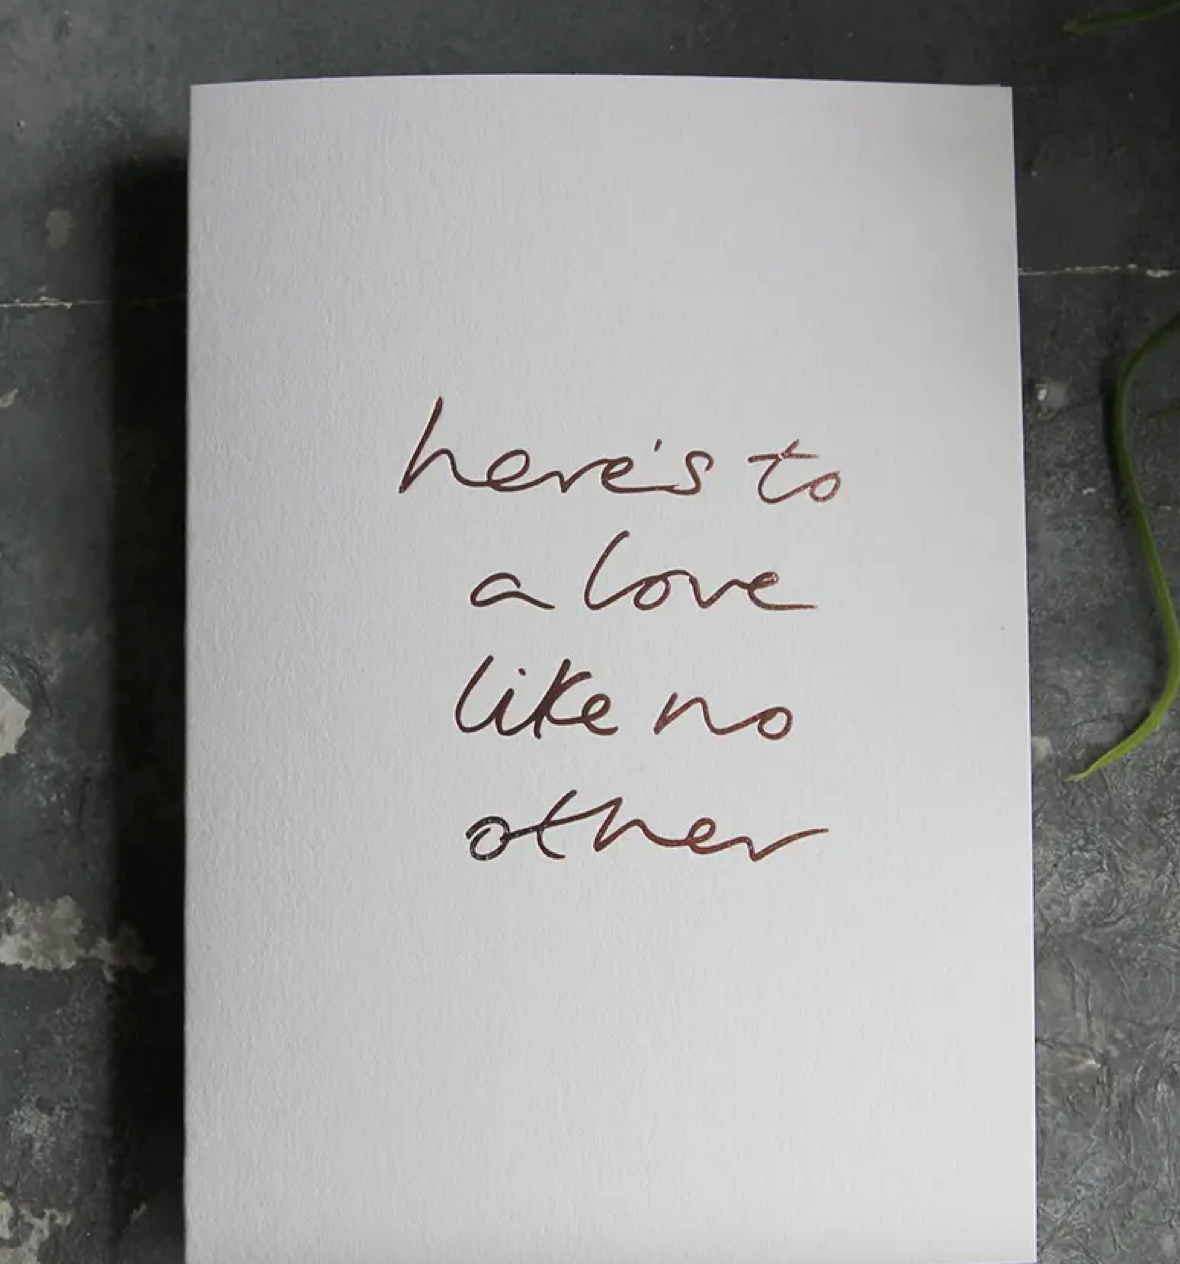 here's to
a love
like no
other